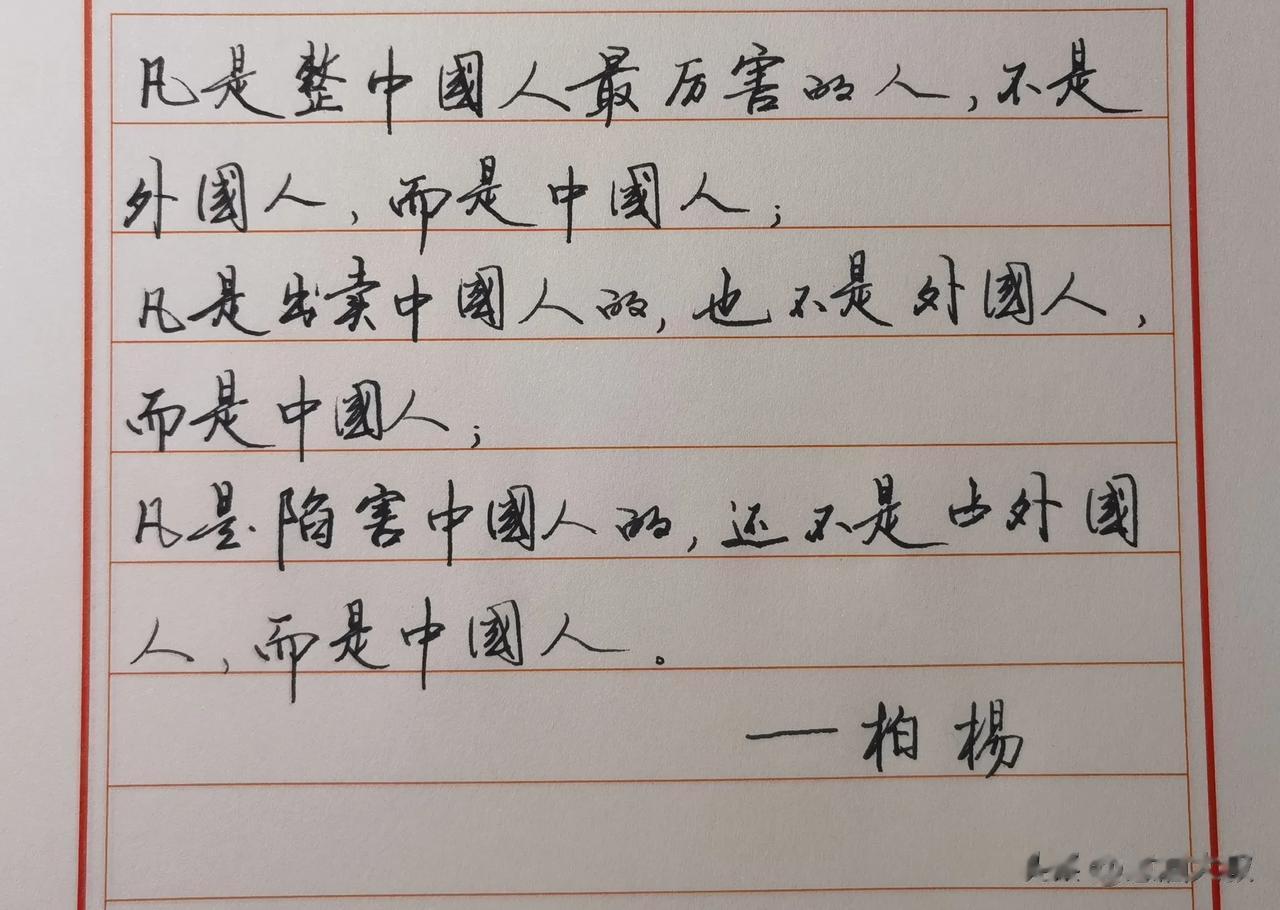 凡是整中國人最厉害的人,不是
外國人,而是中國人;
凡是出卖中國人的,也不是外國人,
而是中國人;
凡是陷害中國人的,还不是外國
人,而是中國人。
——柏楊